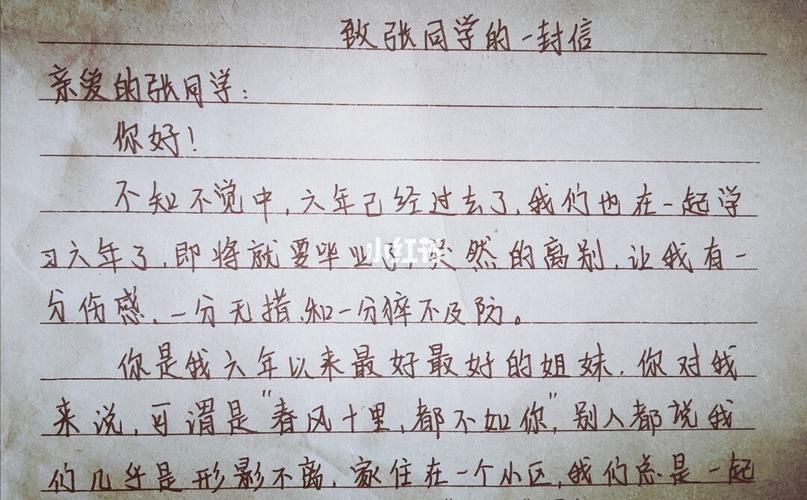 致张同学的一封信
亲爱的张同学：
你好！
不知不觉中，六年已经过去了，我们也在一起学
习六年了，即将就要毕业了，突然的离别，让我有一
分伤感，一分无措，和一分猝不及防。
你是我六年以来最好最好的姐妹，你对我
来说，可谓是“春风十里，都不如你”，别人都说我
们几乎是形影不离，家住在一个小区，我们总是一起
小红书